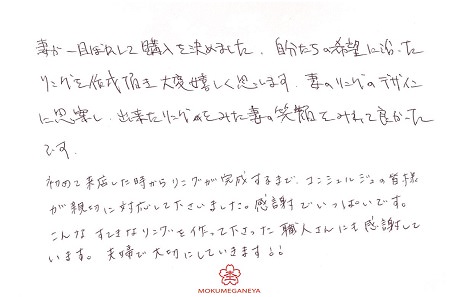 妻が一目ぼれして購入を決めました。自分たちの希望に沿った
リングを作成頂き大変嬉しく思います。妻のリングのデザイン
に思案し、出来たリングをみた妻の笑顔をみれて良かった
です。
初めて来店した時からリングが完成するまで、コンシェルジュの皆様
が親切に対応して下さいました。感謝でいっぱいです。
こんなすてきなリングを作って下さった職人さんにも感謝して
います。夫婦で大切にしていきます!!
MOKUMEGANEYA